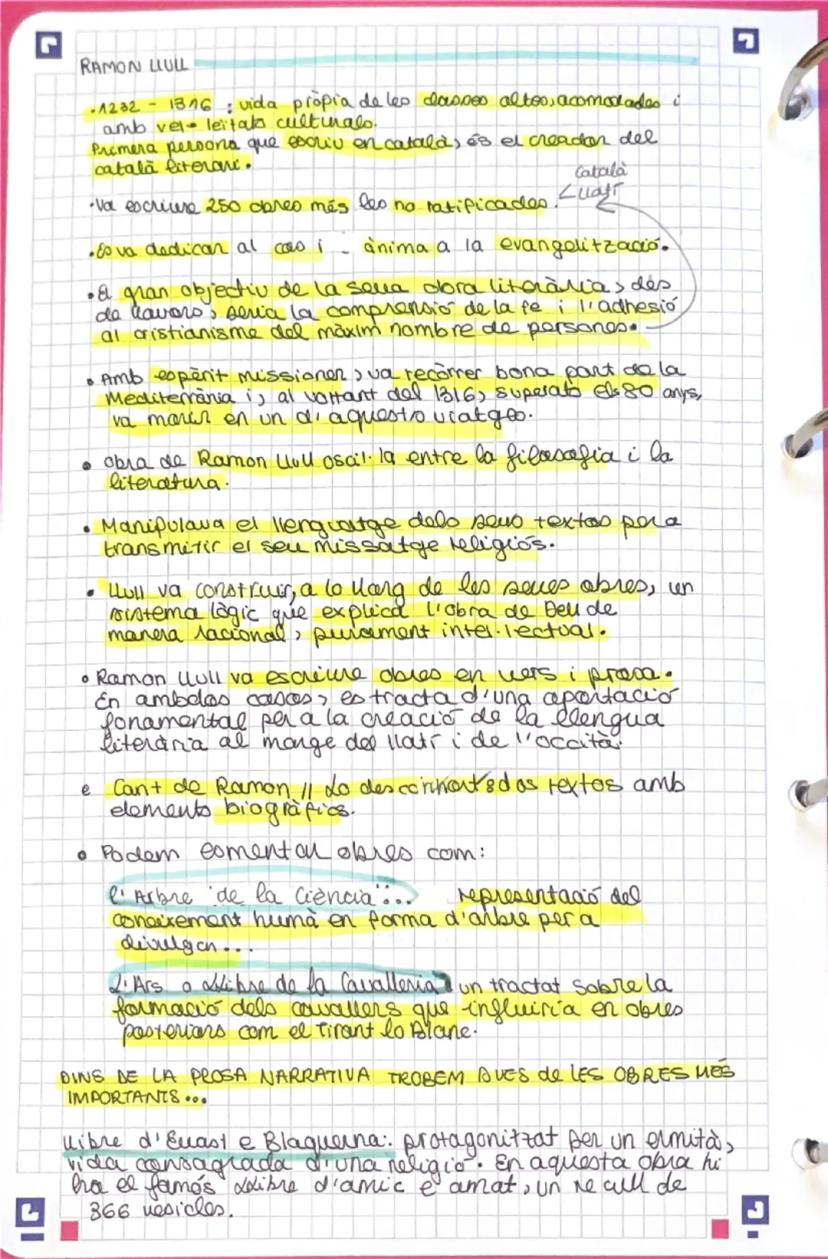 RAMON LLULL
·1232 - 1316 : vida pròpia de les classes altes, acomodades i
amb vel·leitats culturals.
Primera persona que escriu en català, és el creador del
català literari.
·Va escriure 250 obres més les no ratificades.
Català
Llatí
·Es va dedicar al cos i ànima a la evangelització.
·El gran objectiu de la seua obra literària, des
de llavors, seria la comprensió de la fe i l'adhesió
al cristianisme del màxim nombre de persones.
• Amb esperit missioner, va recòrrer bona part de la
Mediterrània i, al voltant del 1316, superats els 80 anys,
va morir en un d'aquestos viatges.
• Obra de Ramon Llull oscil·la entre la filosofia i la
literatura.
• Manipulava el llenguatge dels seus textos per a
transmitir el seu missatge religiós.
• Llull va construir, a lo llarg de les seues obres, un
sistema lògic que explica l'obra de Deu de
manera racional, purament intel·lectual.
• Ramon Llull va escriure obres en vers i prosa.
En ambdos casos, es tracta d'una aportació
fonamental per a la creació de la llengua
literària al marge del llatí i de l'occità.
• Cant de Ramon // Lo desconhort dos textos amb
elements biogràfics.
• Podem esmentar obres com:
l'Arbre de la Ciència"... representació del
coneixement humà en forma d'arbre per a
divulgar...
L'Ars o Llibre de la Cavalleria un tractat sobre la
formació dels cavallers que influiria en obres
posteriors com el Tirant lo Blanc.
DINS DE LA PROSA NARRATIVA TROBEM DUES de LES OBRES MÉS
IMPORTANTS...
Llibre d'Evast e Blaquerna: protagonitzat per un ermità,
vida consagrada d'una religió. En aquesta obra hi
ha el famós Llibre d'amic e amat, un recull de
366 vesicles.